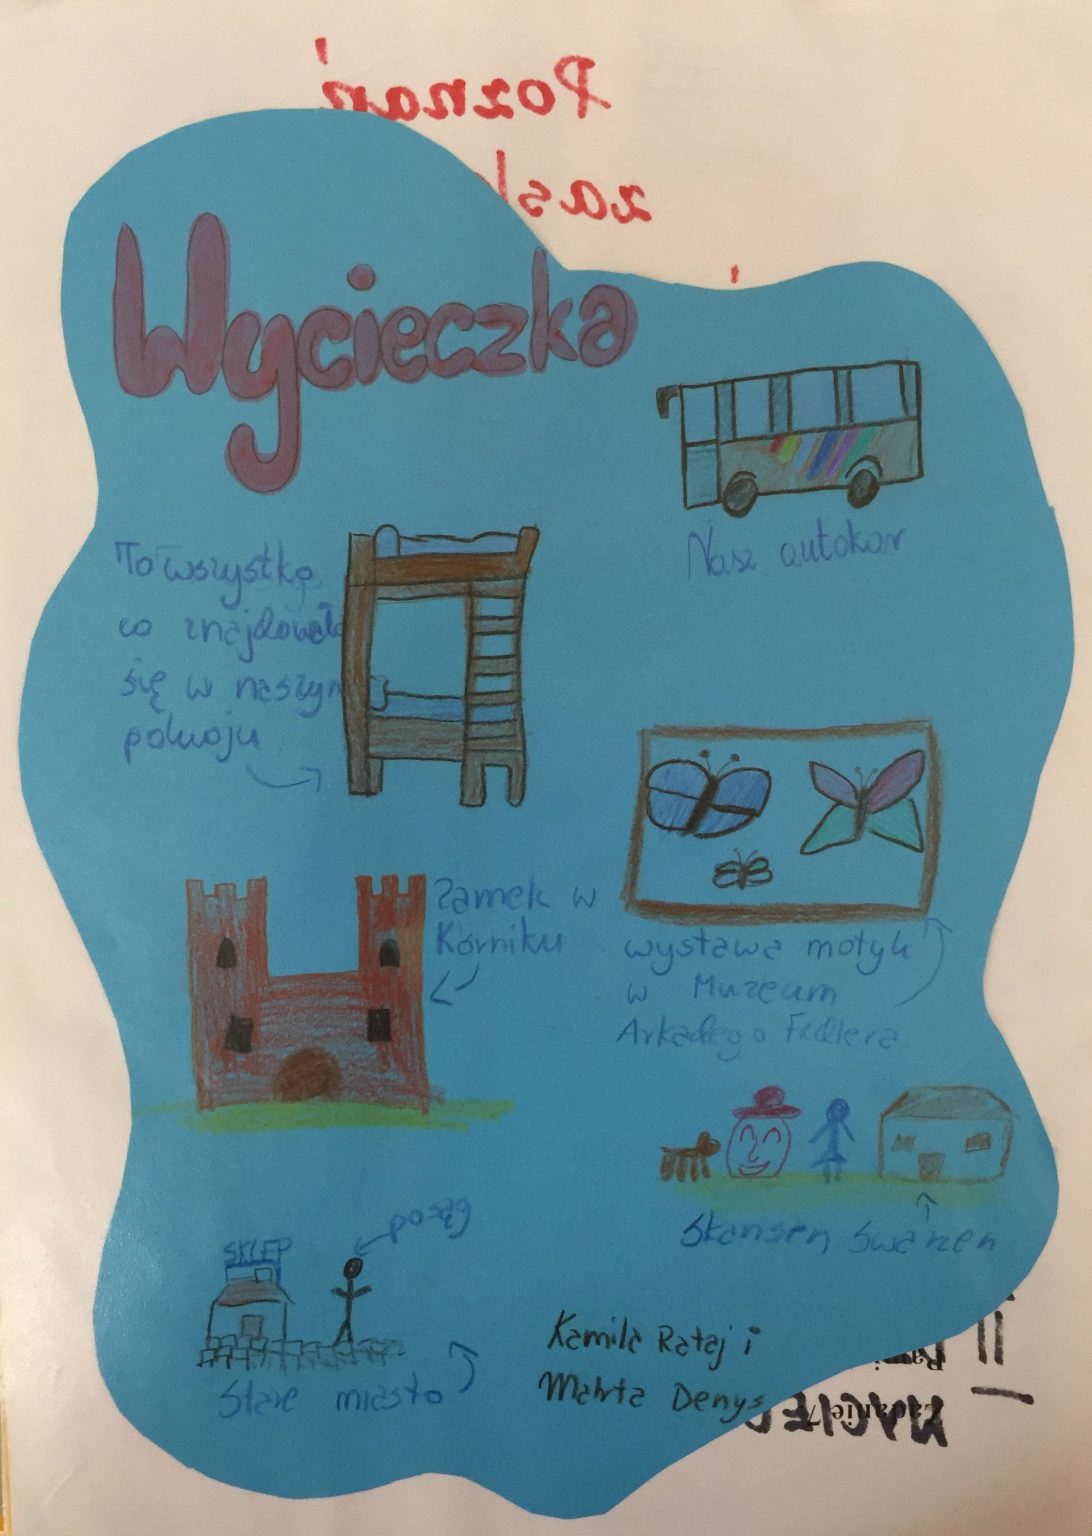 Poznań
Wycieczka
Nasz autokar
To wszystko
co znajdowało
się w naszym
pokoju
Zamek w
Kórniku
wystawa motyli
w Muzeum
Arkadego Fidlera
Skansen Swarzen
posąg
SKLEP
Stare miasto
Kamila Rataj i
Marta Denys